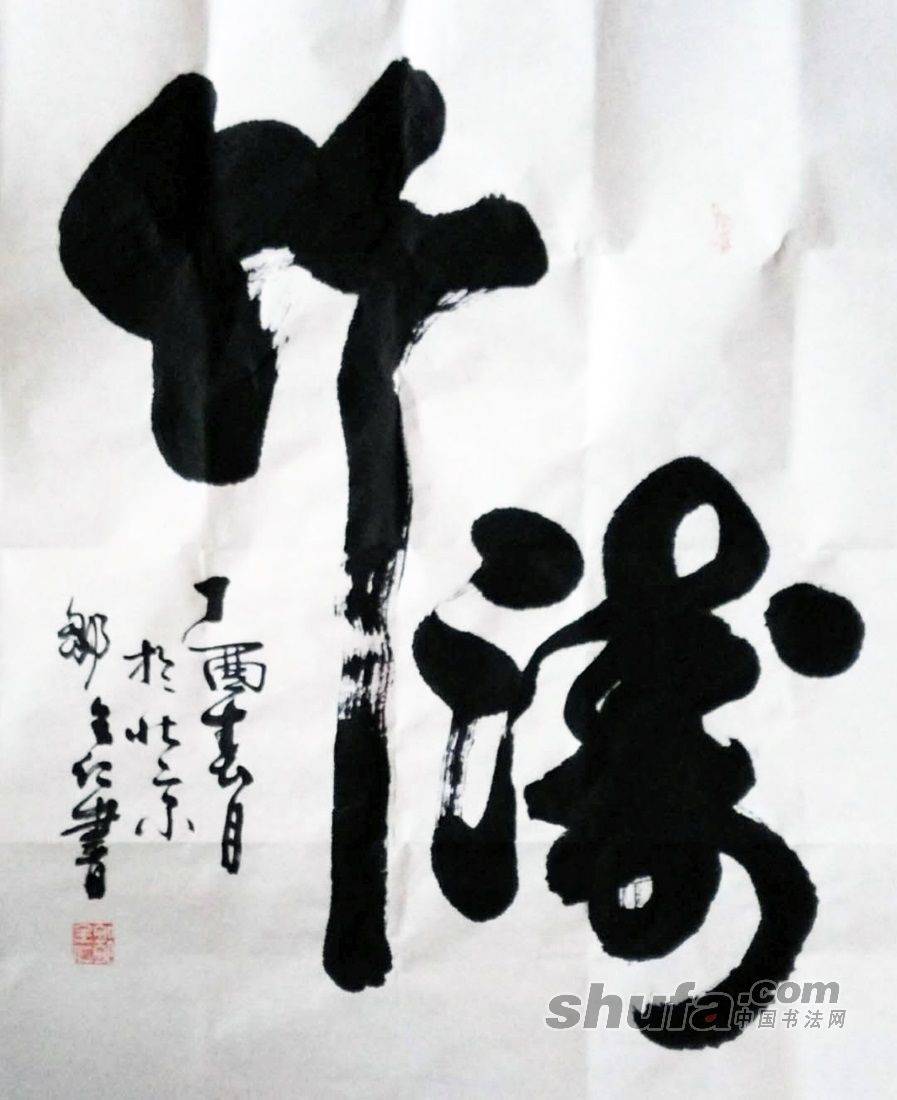 竹涛
丁酉春月
於北京
邹全仁書
shufa.com
中国书法网